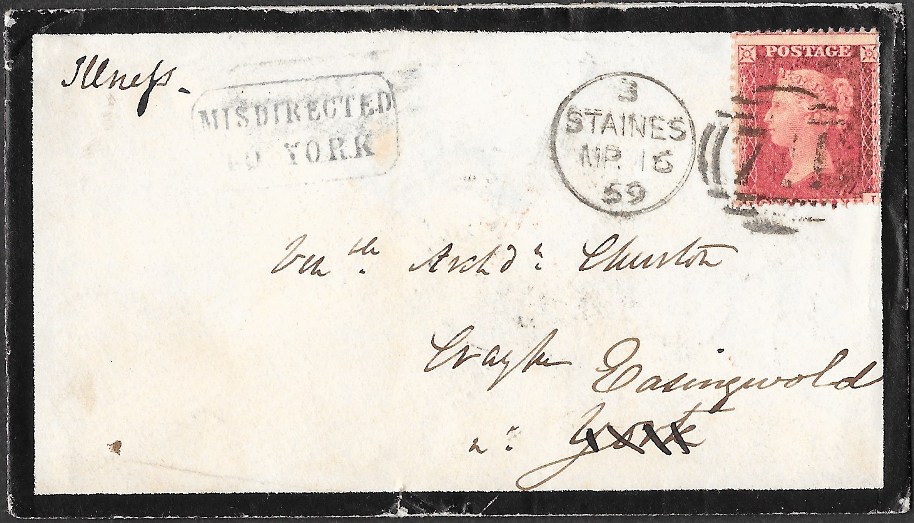 Illness.
MISDIRECTED
TO YORK
3
STAINES
MR 16
59
POSTAGE
Venble. Archdn. Churton
Crayke Easingwold
nr. York